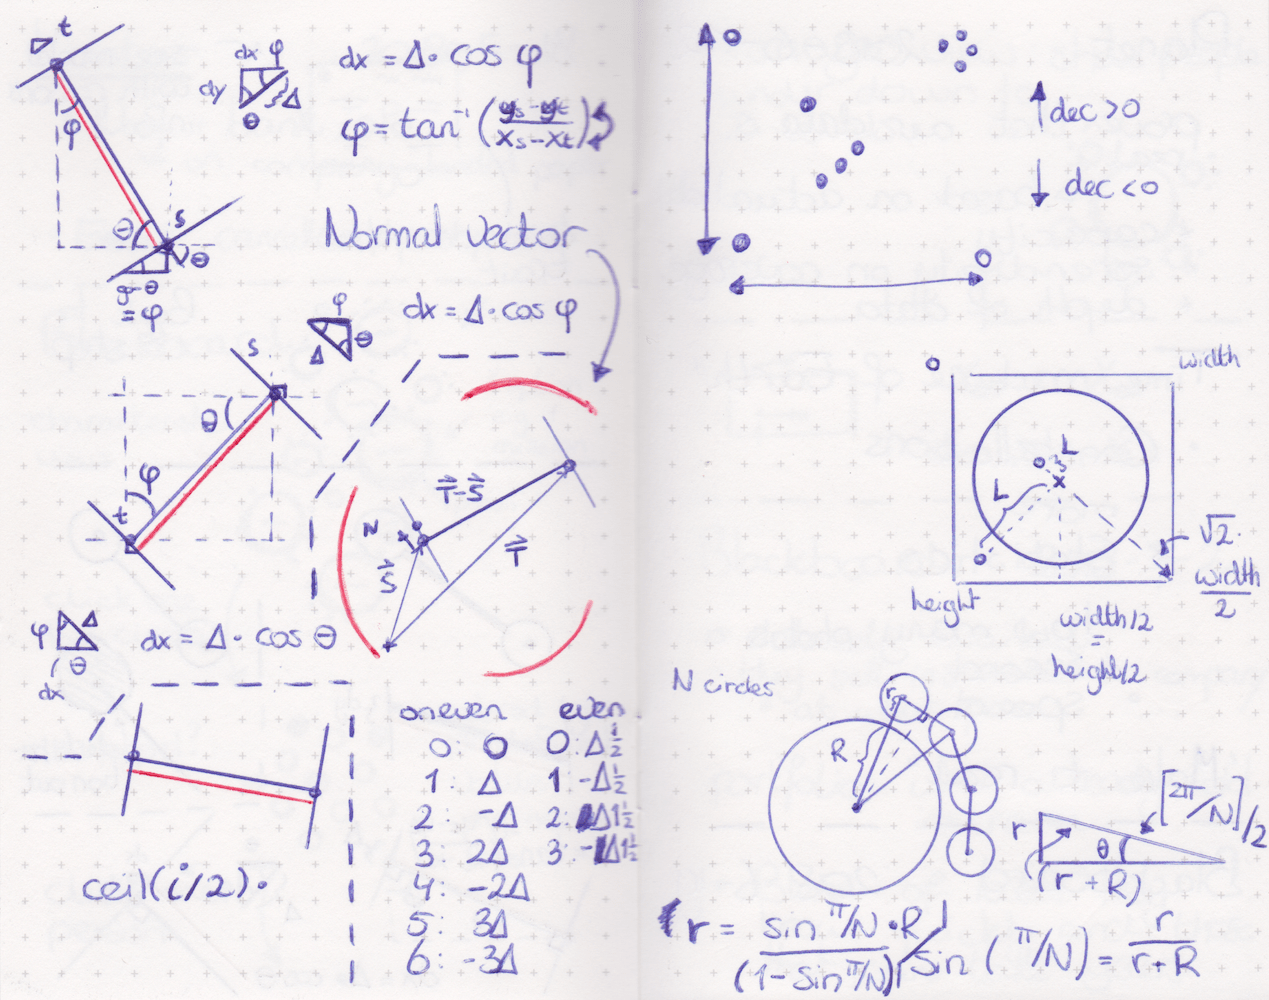 t
dx φ
dy
Δ
θ
dx = Δ · cos φ
φ = tan⁻¹ (ys - yt / xs - xt)
φ
θ
s
θ
= φ
Normal vector
φ
θ
Δ
dx = Δ · cos φ
s
θ
φ
t
T-S
N
S
T
φ
Δ
θ
dx
dx = Δ · cos θ
oneven even
0: 0 0: Δ½
1 Δ 1 -Δ½
2: -Δ 2: Δ1½
3: 2Δ 3: -Δ1½
4: -2Δ
5: 3Δ
6: -3Δ
ceil(i/2) ·
dec >0
dec <0
width
L
L
√2 · width/2
height
width/2
=
height/2
N circles
r
R
[2π/N]/2
r
θ
(r + R)
r = sin π/N · R / (1 - sin π/N)
sin (π/N) = r / r+R